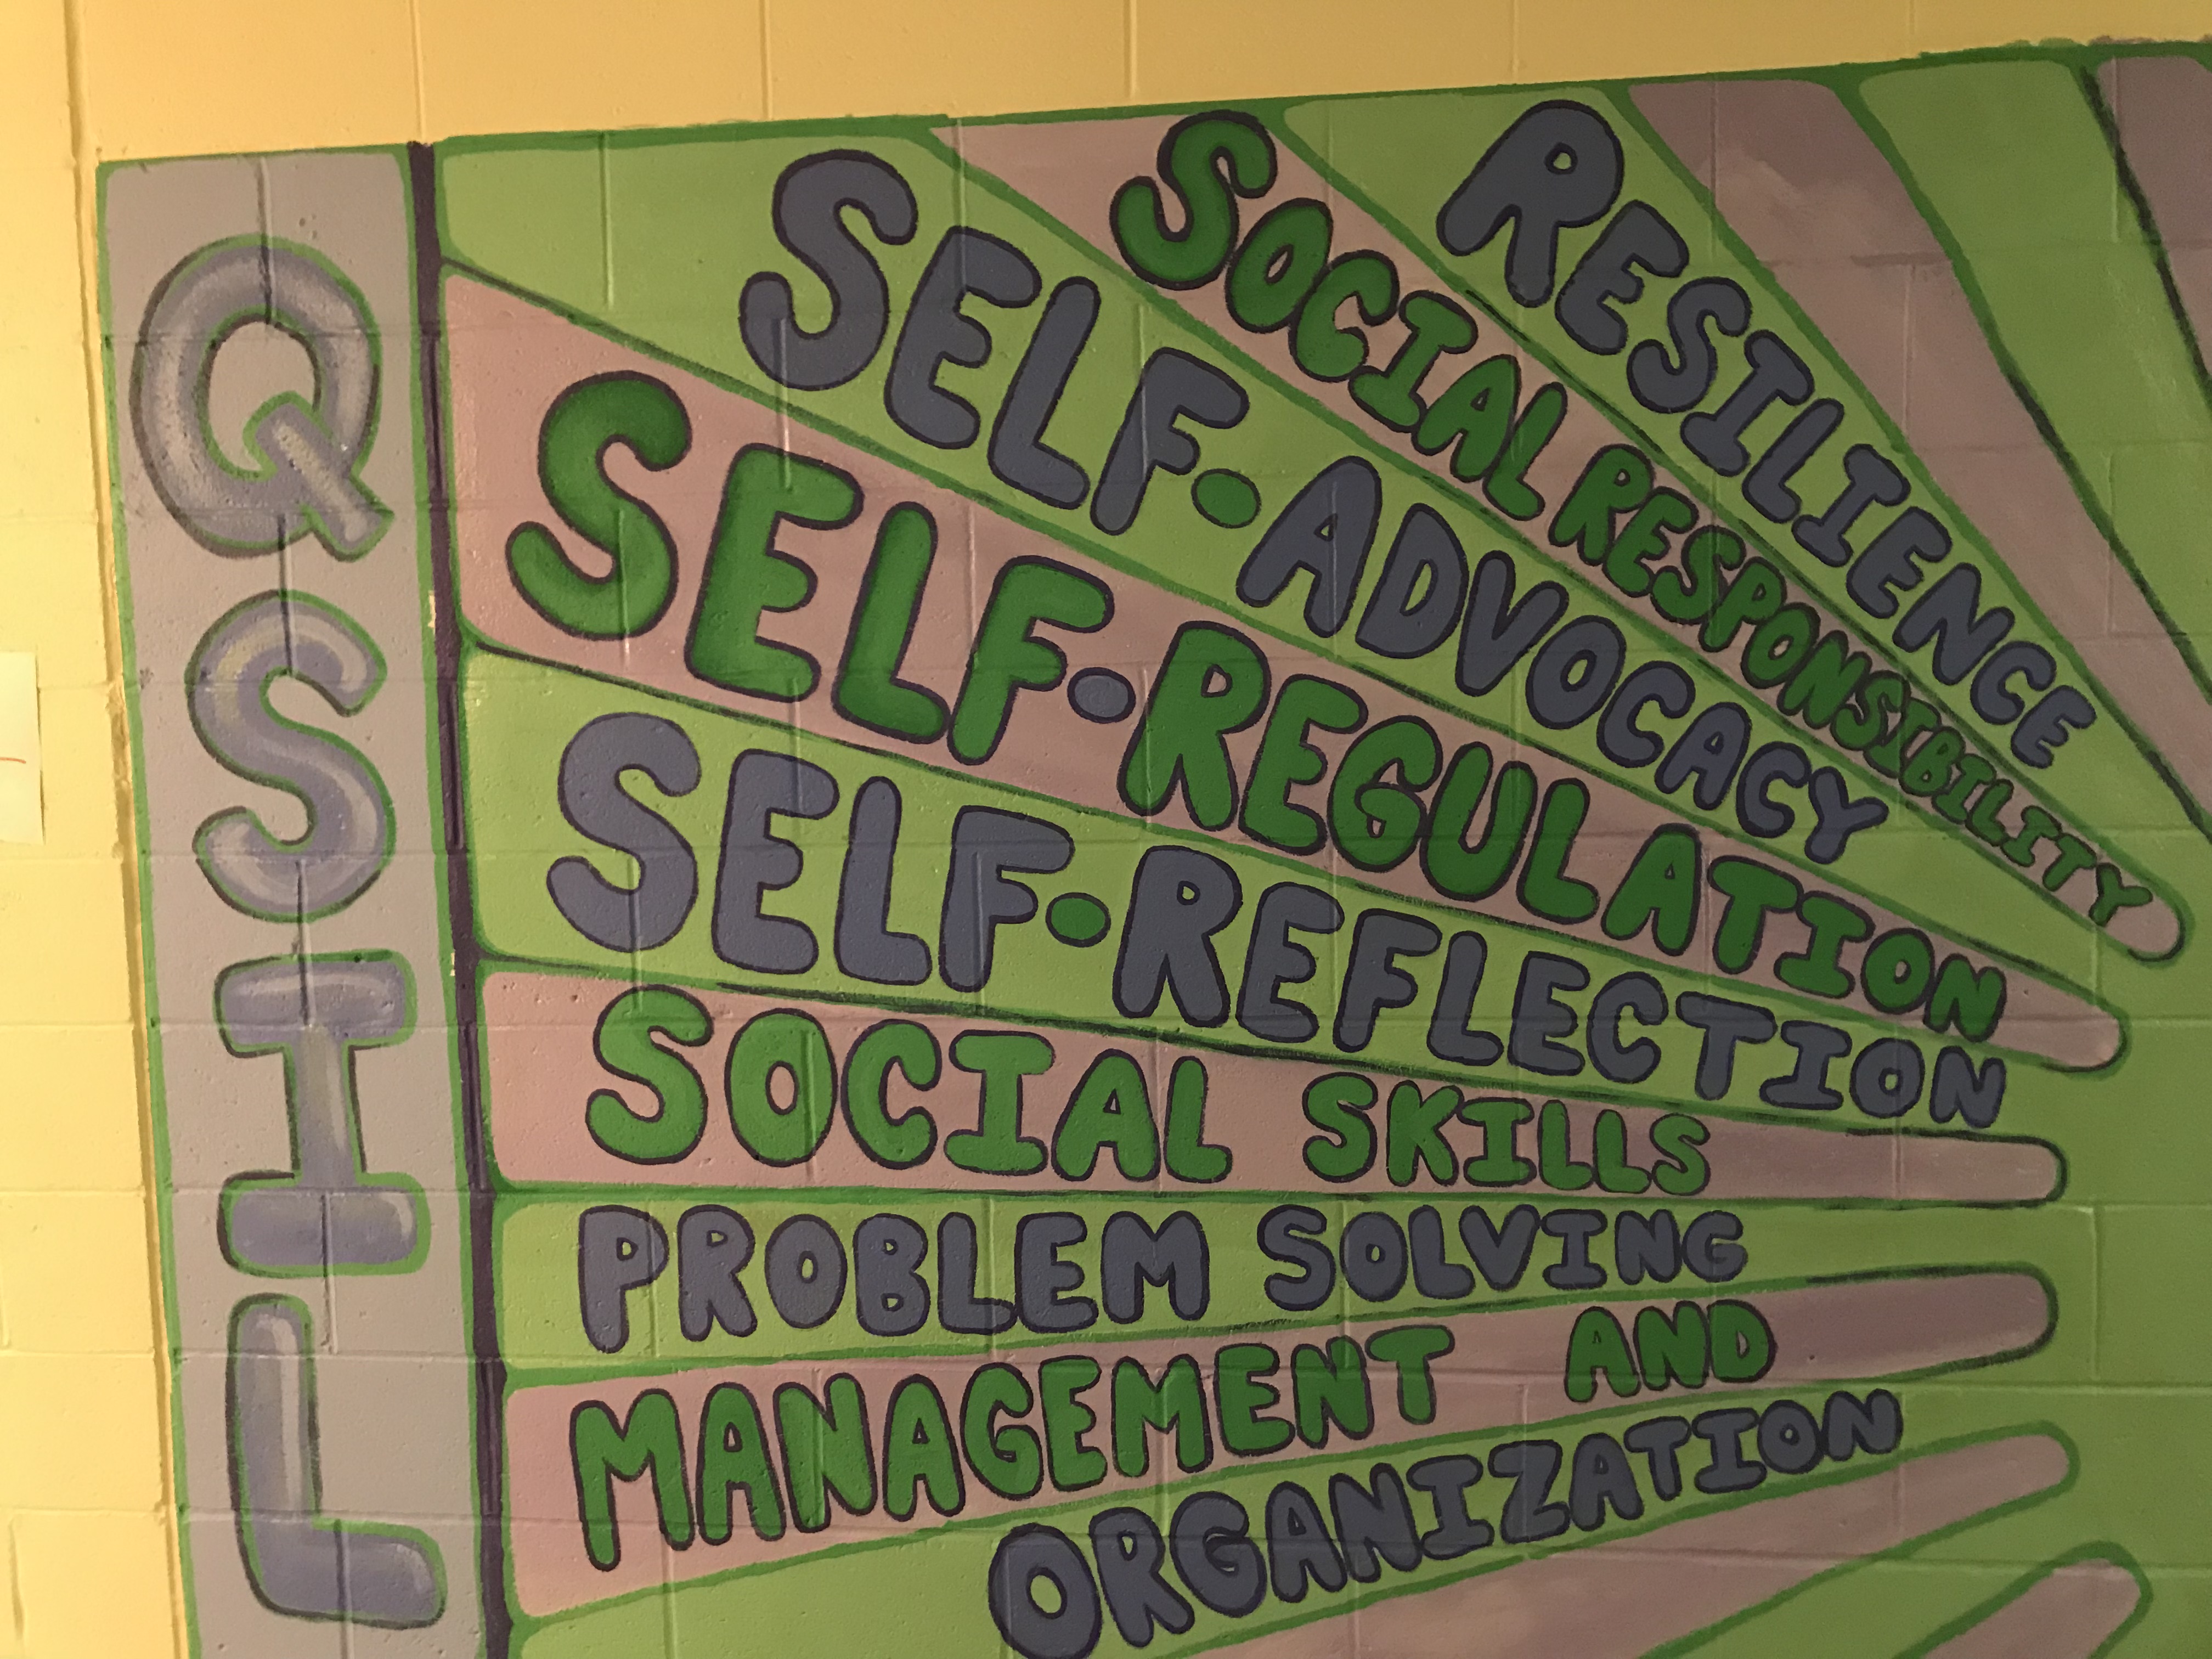 QSIL
RESILIENCE
SOCIAL RESPONSIBILITY
SELF-ADVOCACY
SELF-REGULATION
SELF-REFLECTION
SOCIAL SKILLS
PROBLEM SOLVING
MANAGEMENT AND
ORGANIZATION